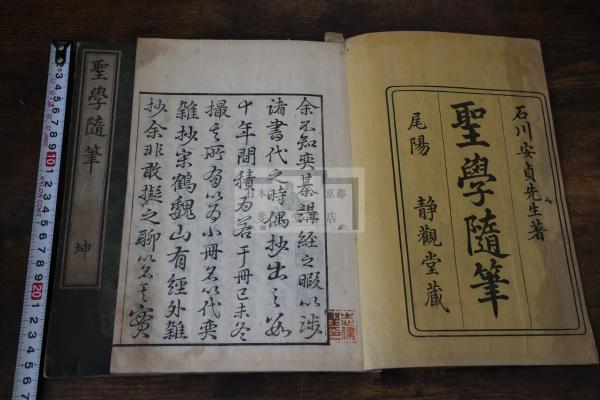 石川安貞先生著
聖學隨筆
尾陽 靜觀堂藏
余不知奕棊講經之暇以涉
諸書代之時偶抄出之數
十年間積為若干冊己未冬
撮其所有以為小冊名以代奕
雜抄宋鶴魏山有經外雜
抄余非敢擬之聊以名其實
聖學隨筆
坤
2 3 4 5 6 7 8 9 10 1 2 3 4 5 6 7 8 9 20 1 2 3 4 5